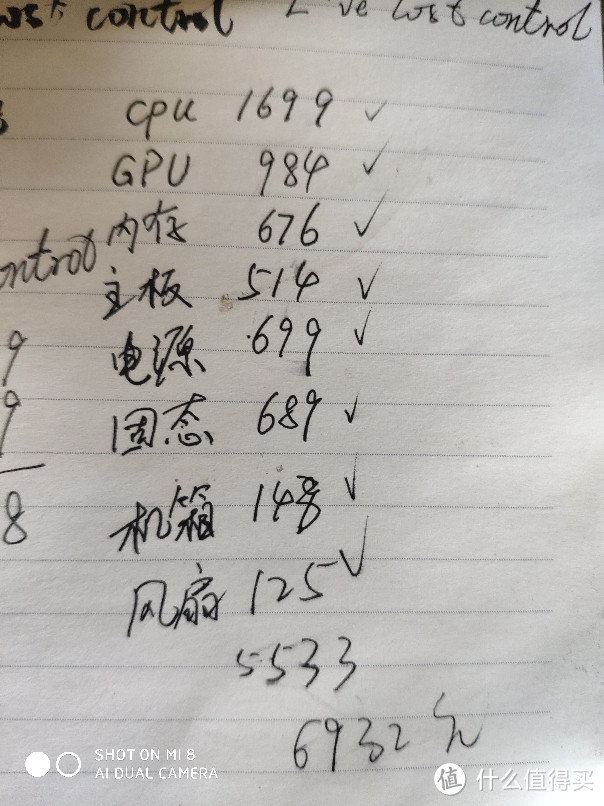 ost control I've lost control
CPU 1699 ✓
GPU 984 ✓
内存 676 ✓
ontrol
主板 514 ✓
9
电源 699 ✓
9
固态 689 ✓
8
机箱 148 ✓
风扇 125 ✓
5533
6932元
SHOT ON MI 8
AI DUAL CAMERA
值 什么值得买